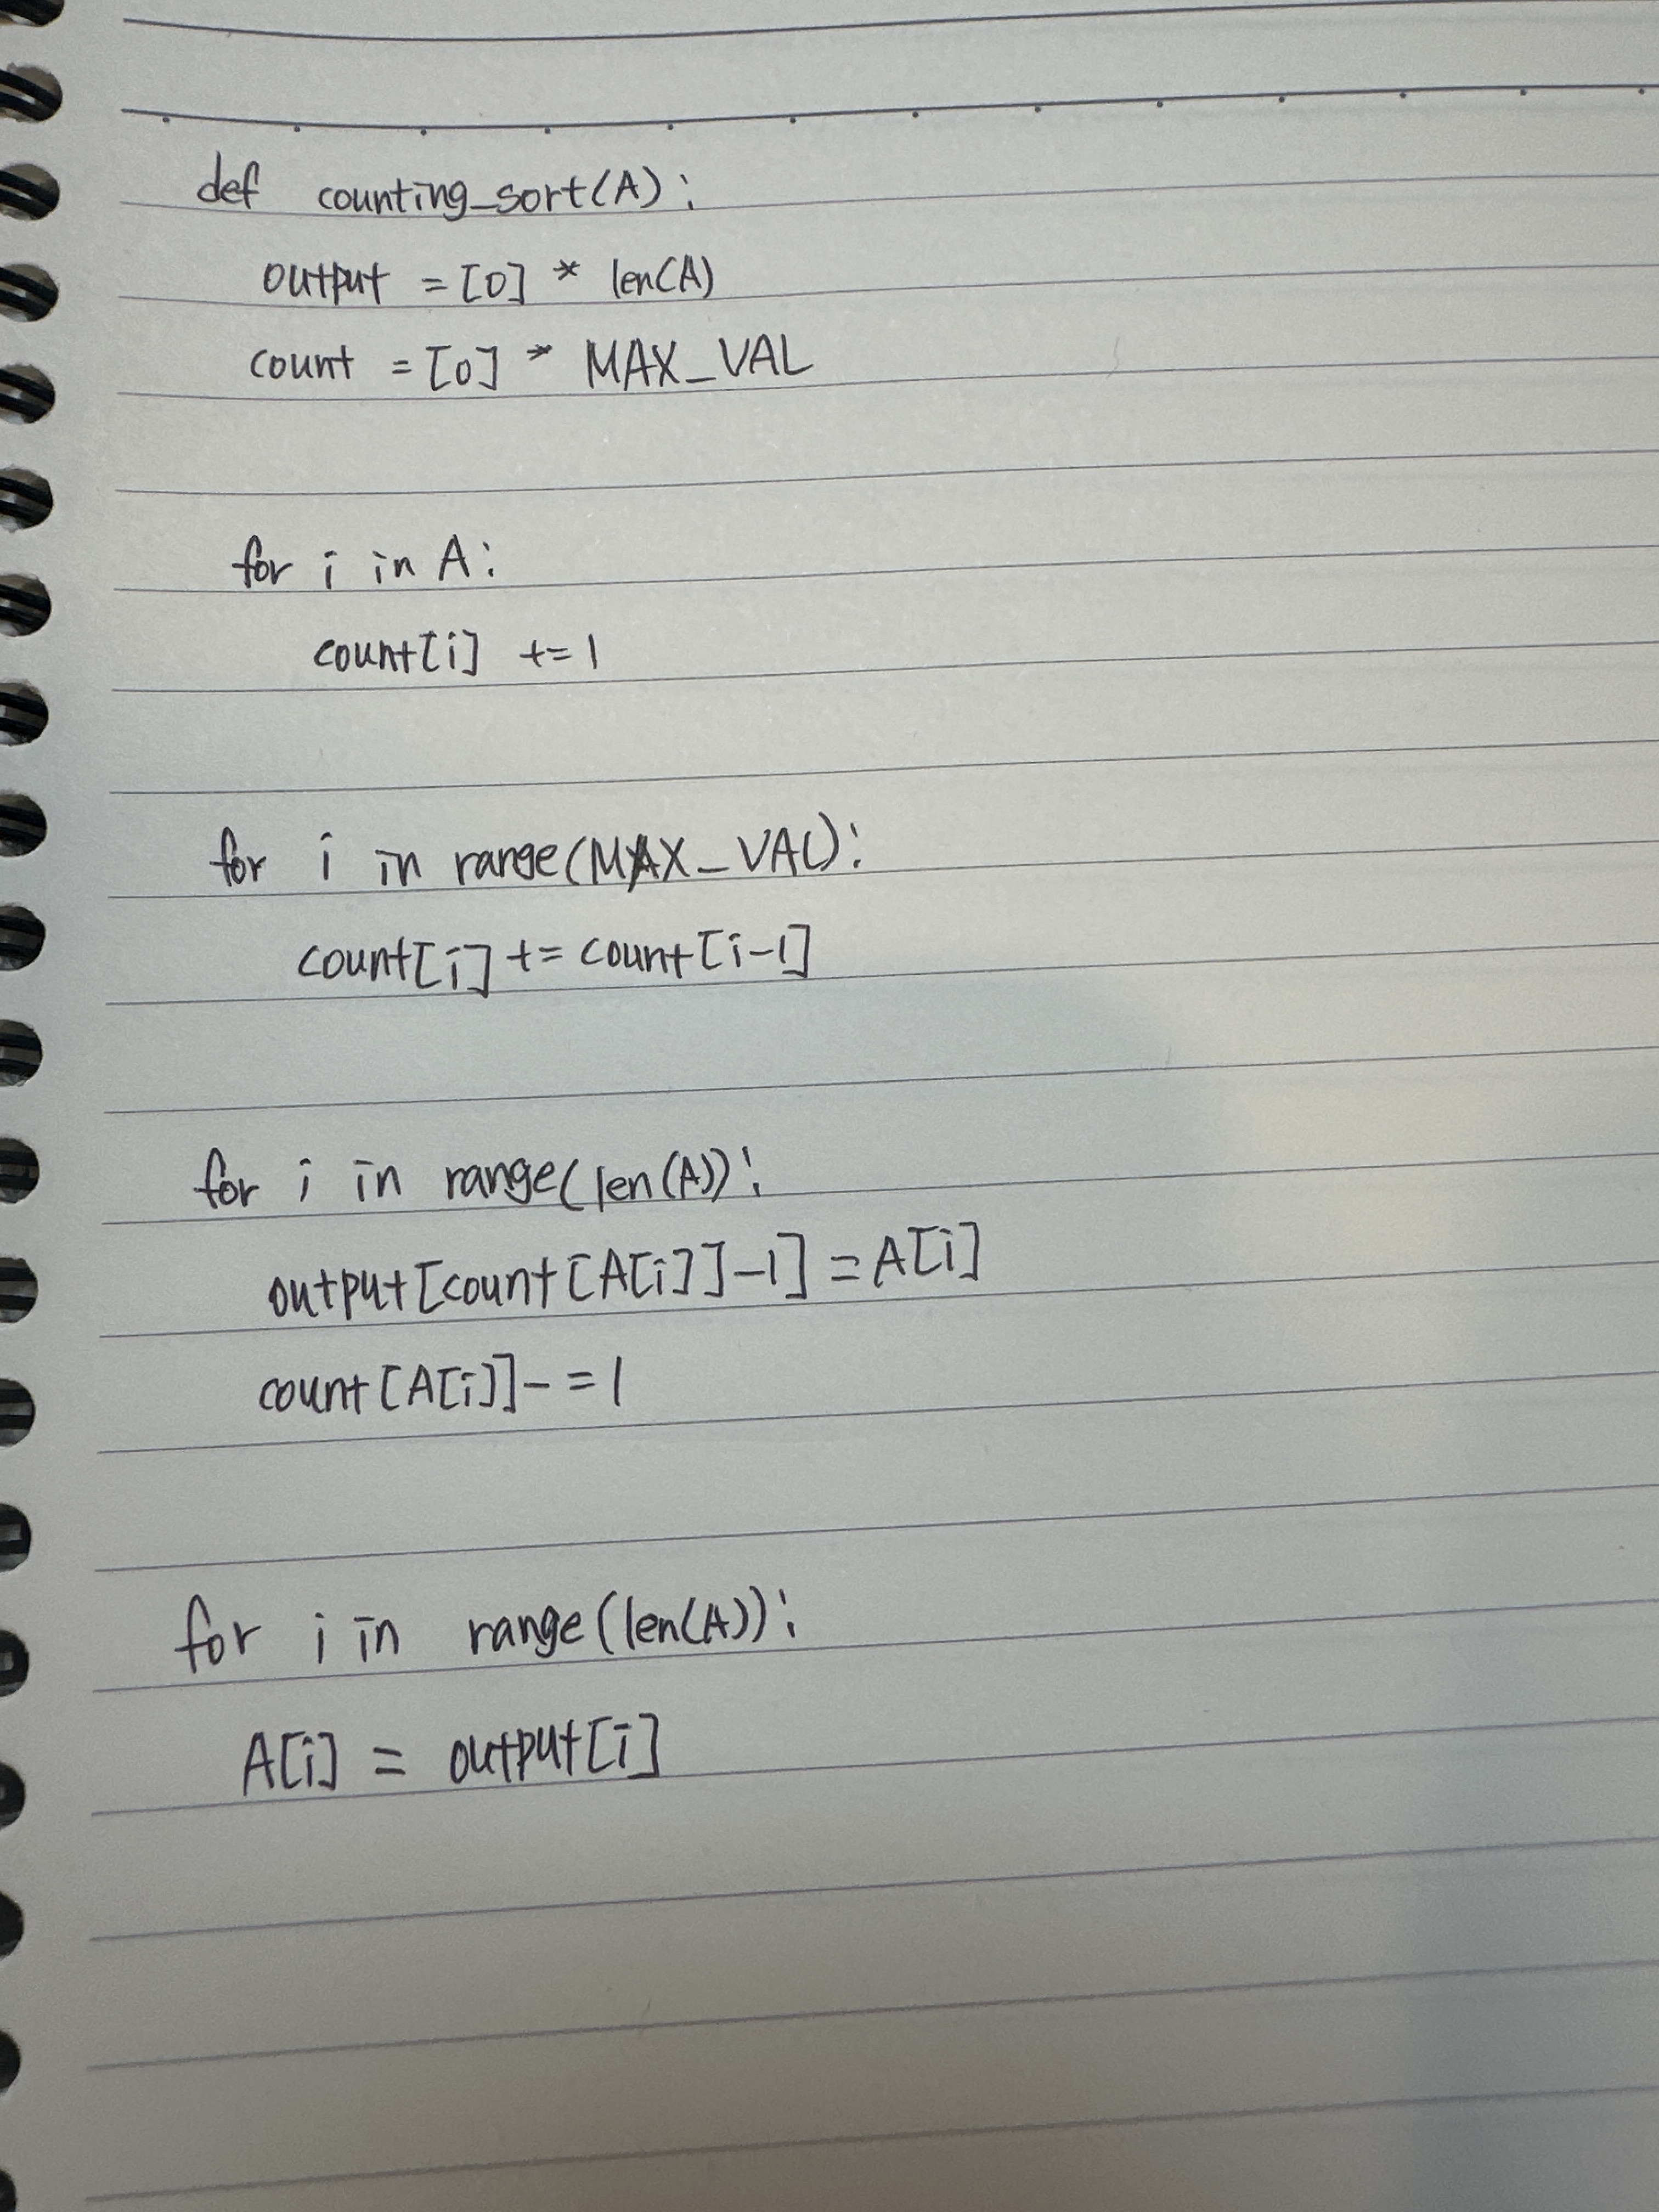 def counting_sort(A):
output = [0] * len(A)
count = [0] * MAX_VAL
for i in A:
count[i] += 1
for i in range(MAX_VAL):
count[i] += count[i-1]
for i in range(len(A)):
output[count[A[i]]-1] = A[i]
count[A[i]] -= 1
for i in range(len(A)):
A[i] = output[i]